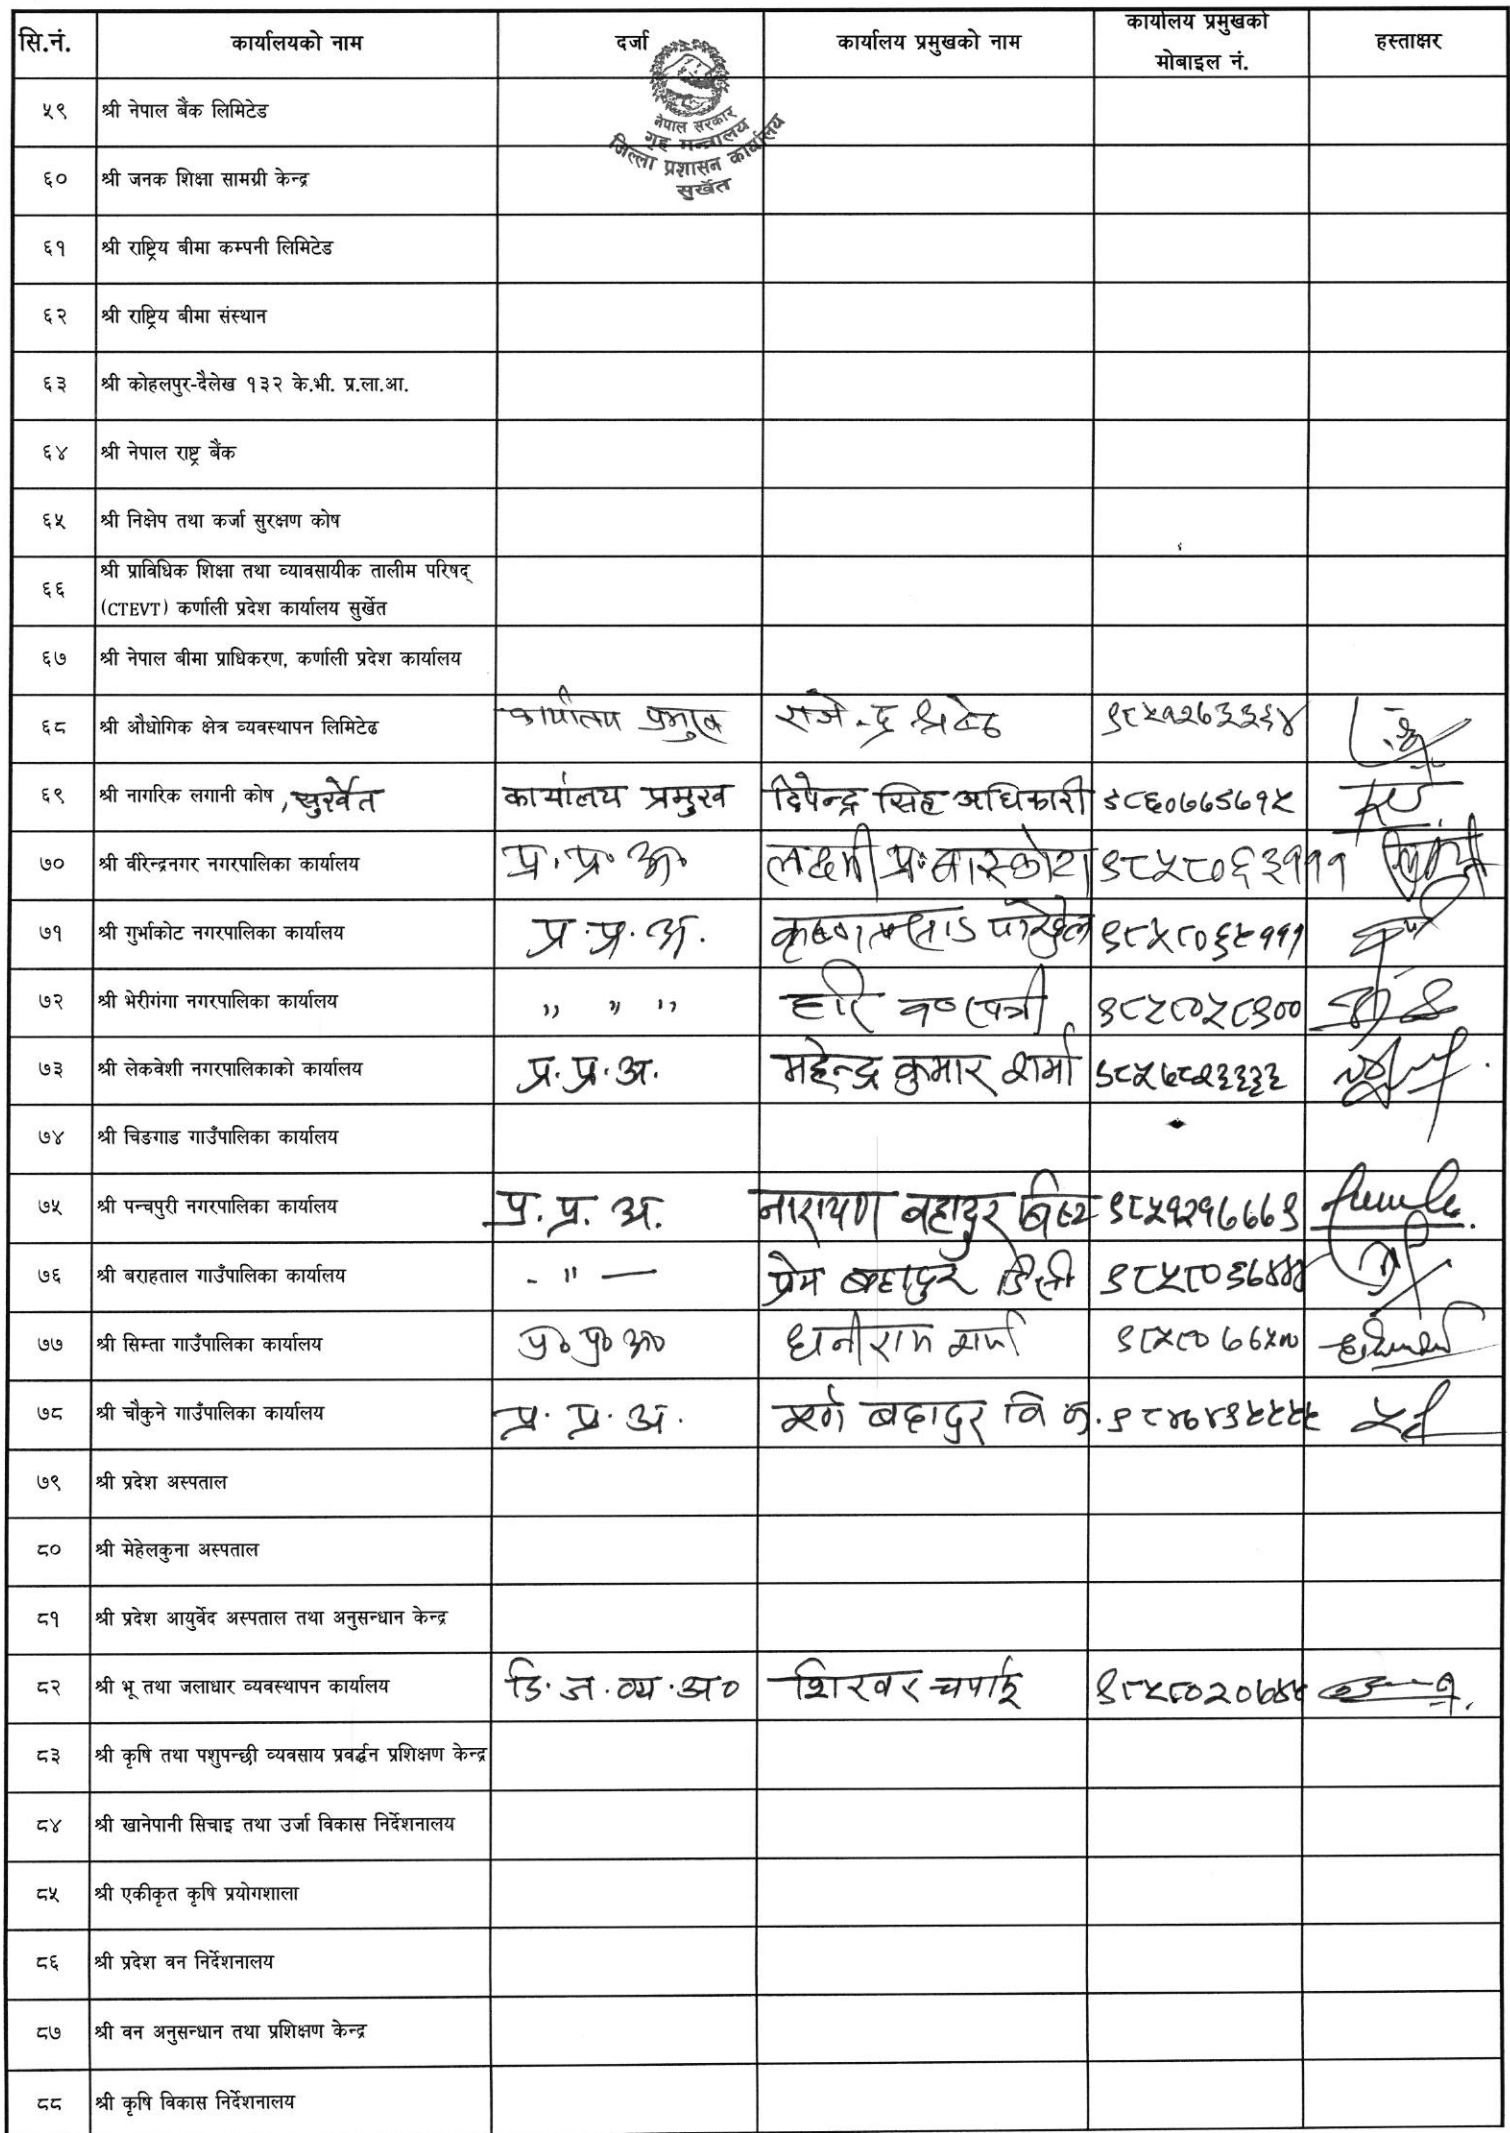 सि.नं. कार्यालयको नाम दर्जा कार्यालय प्रमुखको नाम कार्यालय प्रमुखको मोबाइल नं. हस्ताक्षर
नेपाल सरकार
गृह मन्त्रालय
जिल्ला प्रशासन कार्यालय
सुर्खेत
५९ श्री नेपाल बैंक लिमिटेड
६० श्री जनक शिक्षा सामग्री केन्द्र
६१ श्री राष्ट्रिय बीमा कम्पनी लिमिटेड
६२ श्री राष्ट्रिय बीमा संस्थान
६३ श्री कोहलपुर-दैलेख १३२ के.भी. प्र.ला.आ.
६४ श्री नेपाल राष्ट्र बैंक
६५ श्री निक्षेप तथा कर्जा सुरक्षण कोष
६६ श्री प्राविधिक शिक्षा तथा व्यावसायीक तालीम परिषद्
(CTEVT) कर्णाली प्रदेश कार्यालय सुर्खेत
६७ श्री नेपाल बीमा प्राधिकरण, कर्णाली प्रदेश कार्यालय
६८ श्री औधोगिक क्षेत्र व्यवस्थापन लिमिटेढ कार्यालय प्रमुख राजेन्द्र श्रेष्ठ ९८५१२६३३६४
६९ श्री नागरिक लगानी कोष, सुर्खेत कार्यालय प्रमुख दिपेन्द्र सिह अधिकारी ९८६०७७९७१५
७० श्री बीरेन्द्रनगर नगरपालिका कार्यालय प्र. प्र. अ. लक्ष्मी प्र. बास्कोटा ९८५८०६३१११
७१ श्री गुर्भाकोट नगरपालिका कार्यालय प्र. प्र. अ. कृष्ण प्रसाद पोखरेल ९८५८०६५१११
७२ श्री भेरीगंगा नगरपालिका कार्यालय ,, ,, ,, हरि ९८५८०५८९००
७३ श्री लेकवेशी नगरपालिकाको कार्यालय प्र. प्र. अ. महेन्द्र कुमार शर्मा
७४ श्री चिङगाड गाउँपालिका कार्यालय
७५ श्री पन्चपुरी नगरपालिका कार्यालय प्र. प्र. अ. नारायण बहादुर बिष्ट ९८५१२१७७७९
७६ श्री बराहताल गाउँपालिका कार्यालय - " — प्रेम बहादुर डिसी
७७ श्री सिम्ता गाउँपालिका कार्यालय प्र० प्र० अ० धनीराम शर्मा
७८ श्री चौकुने गाउँपालिका कार्यालय प्र. प्र. अ. बहादुर वि क.
७९ श्री प्रदेश अस्पताल
८० श्री मेहेलकुना अस्पताल
८१ श्री प्रदेश आयुर्वेद अस्पताल तथा अनुसन्धान केन्द्र
८२ श्री भू तथा जलाधार व्यवस्थापन कार्यालय डि. ज. व्य. अ० शिखर चपाई
८३ श्री कृषि तथा पशुपन्छी व्यवसाय प्रवर्द्धन प्रशिक्षण केन्द्र
८४ श्री खानेपानी सिचाइ तथा उर्जा विकास निर्देशनालय
८५ श्री एकीकृत कृषि प्रयोगशाला
८६ श्री प्रदेश वन निर्देशनालय
८७ श्री वन अनुसन्धान तथा प्रशिक्षण केन्द्र
८८ श्री कृषि विकास निर्देशनालय